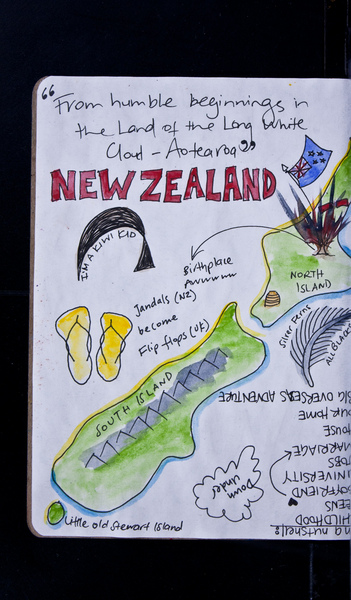 "From humble beginnings in
the Land of the Long White
Cloud - Aotearoa"
NEW ZEALAND
I'M A KIWI KID
Birthplace
NORTH
ISLAND
Jandals (NZ)
become
Flip flops (UK)
Silver Ferns
ALL BLACKS
SOUTH ISLAND
Down
under
Little old Stewart Island
a nutshell:
HILDHOOD
EENS
OYFRIEND
UNIVERSITY
JOBS
MARRIAGE
OUSE
OUR HOME
BIG OVERSEAS ADVENTURE